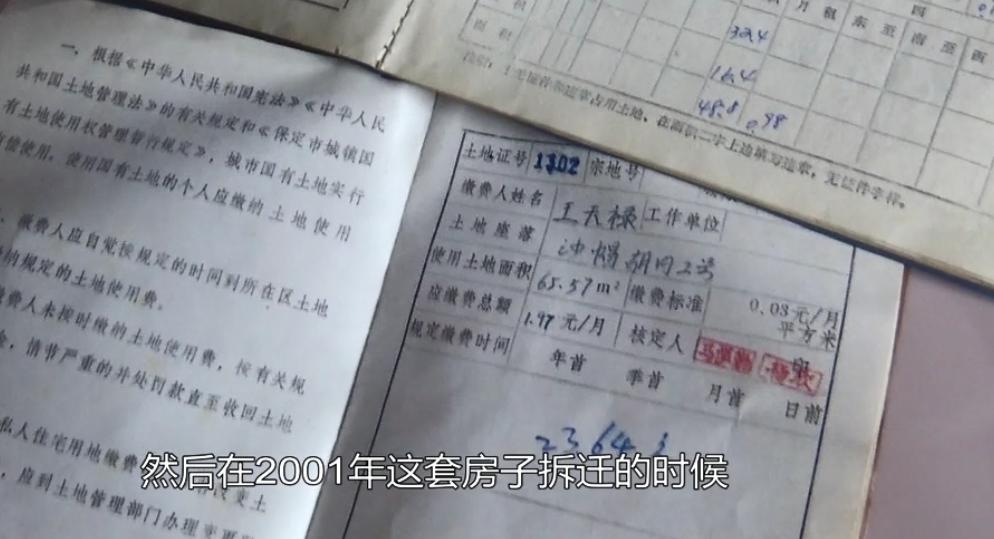 一、根据《中华人民共和国宪法》《中华人民
共和国土地管理法》的有关规定和《保定市城镇国
有土地使用权管理暂行规定》，城市国有土地实行
偿使用。使用国有土地的个人应缴的土地使用
缴费人应自觉按规定的时间到所在区土地
纳规定的土地使用费。
费人未按时缴的土地使用费，按有关规
情节严重的并处罚款直至收回土地
私人住宅用地缴费
变土
应到土地管理部门办理变更
月租 东至 南至 西
四
面积
32.4
16.4
48.8 0.98
无证件和违章占用土地，在面积二字上边填写违章，无证件字样。
土地证号 1302 宗地号
缴费人姓名 王天禄 工作单位
土地座落 冲帽胡同2号
使用土地面积 65.57m² 缴费标准 0.03元/月平方米
应缴费总额 1.97元/月 核定人 印
规定缴费时间 年首 季首 月首 日前
然后在2001年这套房子拆迁的时候